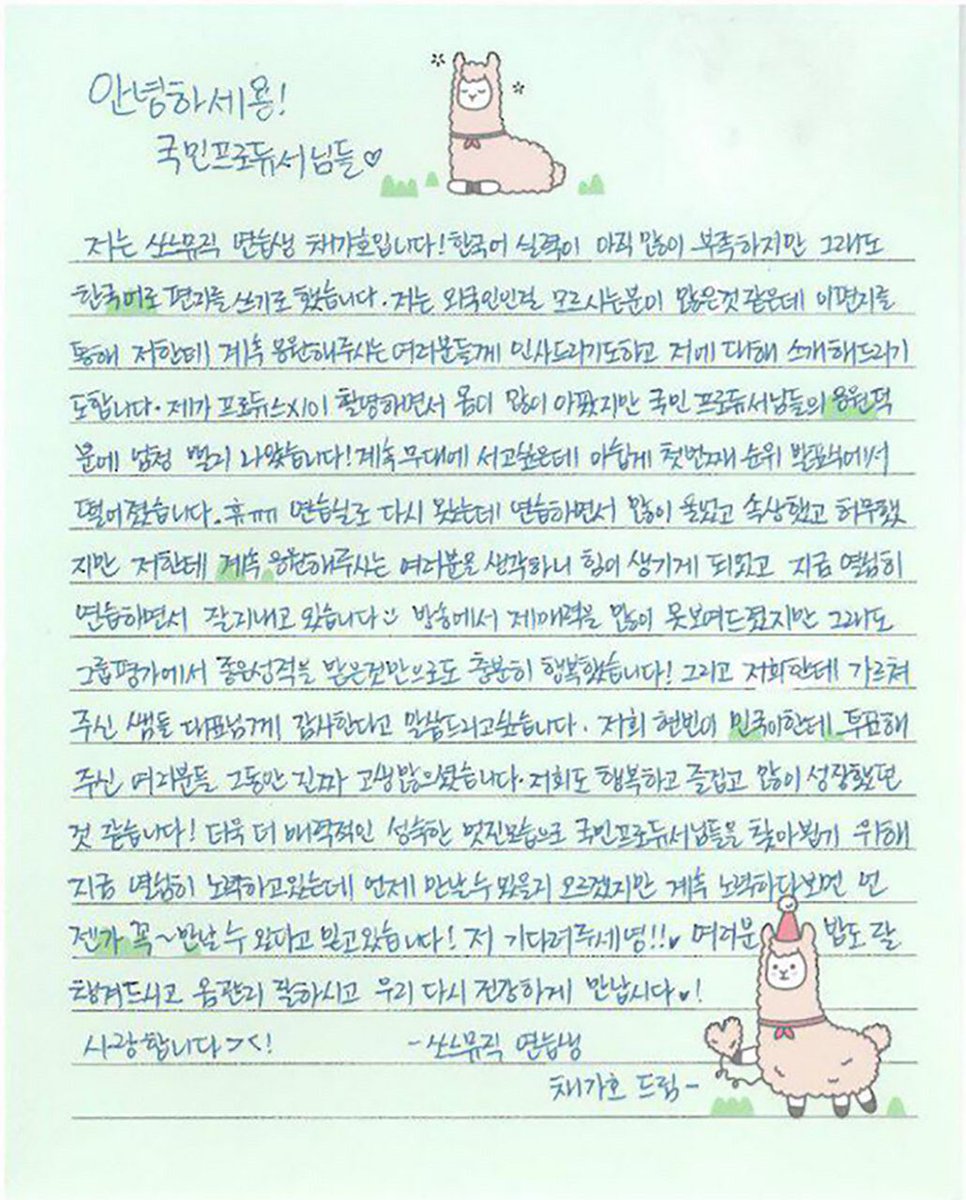 안녕하세용!
국민프로듀서님들♡
저는 쏘스뮤직 연습생 채가호입니다! 한국어 실력이 아직 많이 부족하지만 그래도
한국어로 편지를 쓰기로 했습니다. 저는 외국인인걸 모르시는분이 많은것 같은데 이편지를
통해 저한테 계속 응원해주시는 여러분들게 인사드리기도하고 저에 대해 소개해드리기
도합니다. 제가 프로듀스X101 촬영하면서 몸이 많이 아팠지만 국민 프로듀서님들의 응원덕
분에 엄청 멀리 나왔습니다! 계속 무대에 서고싶은데 아쉽게 첫번째 순위 발표식에서
떨어졌습니다. 휴ㅠㅠ 연습실로 다시 왔는데 연습하면서 많이 울었고 속상했고 허무했
지만 저한테 계속 응원해주시는 여러분을 생각하니 힘이 생기게 되었고 지금 열심히
연습하면서 잘지내고 있습니다:) 방송에서 제매력을 많이 못보여드렸지만 그래도
그룹평가에서 좋은성적을 받은것만으로도 충분히 행복했습니다! 그리고 저희한테 가르쳐
주신 쌤들 대표님게 감사한다고 말씀드리고싶습니다. 저희 현빈이 민국이한테 투표해
주신 여러분들 그동안 진짜 고생많으셨습니다. 저희도 행복하고 즐겁고 많이 성장했던
것 같습니다! 더욱 더 매력적인 성숙한 멋진모습으로 국민프로듀서님들을 찾아뵙기 위해
지금 열심히 노력하고있는데 언제 만날수 있을지 모르겠지만 계속 노력하다보면 언
젠가 꼭~만날 수 있다고 믿고있습니다! 저 기다려주세영!!♥ 여러분 밥도 잘
챙겨드시고 몸관리 잘하시고 우리 다시 건강하게 만납시다♥!
사랑합니다><! -쏘스뮤직 연습생
채가호 드림-